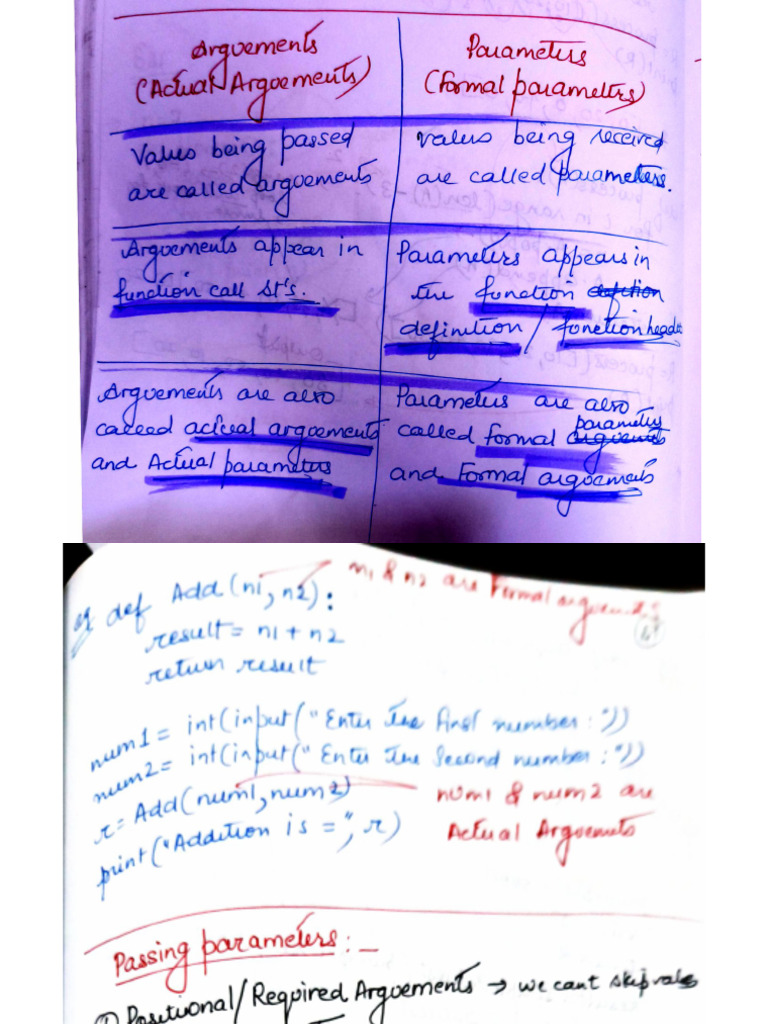 Arguements
(Actual Arguements)
Parameters
(Formal parameters)
Values being passed
are called arguements
values being received
are called parameters.
Arguements appear in
function call st's.
Parameters appears in
the function
definition / function header
Arguements are also
called actual arguements
and Actual parameters
Parameters are also
called formal parameters
and Formal arguements
eg def Add(n1, n2):
n1 & n2 are Formal arguements
result = n1 + n2
return result
num1 = int(input("Enter the First number : "))
num2 = int(input("Enter the Second number : "))
r = Add(num1, num2)
num1 & num2 are
Actual Arguemets
print("Addition is =", r)
Passing parameters : _
① Positional/Required Arguements → we cant skip vals